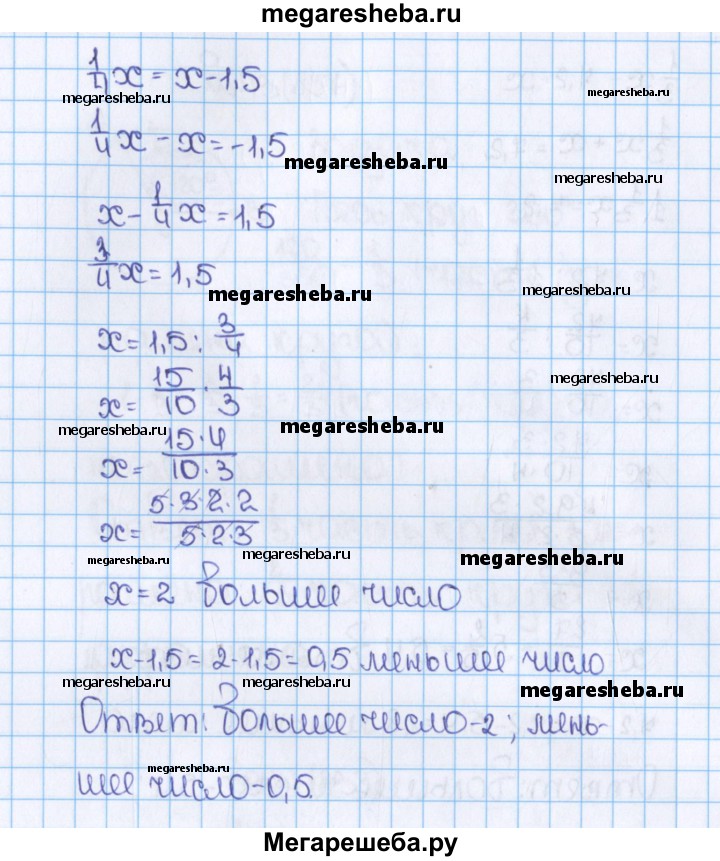 megaresheba.ru
1/4 x = x - 1,5
megaresheba.ru
megaresheba.ru
1/4 x - x = -1,5
megaresheba.ru
megaresheba.ru
x - 1/4 x = 1,5
3/4 x = 1,5
megaresheba.ru
megaresheba.ru
x = 1,5 : 3/4
x = 15/10 · 4/3
megaresheba.ru
megaresheba.ru
megaresheba.ru
x = 15·4/10·3
x = 5·3·2·2/5·2·3
megaresheba.ru
megaresheba.ru
megaresheba.ru
x = 2 большее число
x - 1,5 = 2 - 1,5 = 0,5 меньшее число
megaresheba.ru
megaresheba.ru
megaresheba.ru
Ответ: большее число - 2; мень-
megaresheba.ru
шее число - 0,5.
Мегарешеба.ру